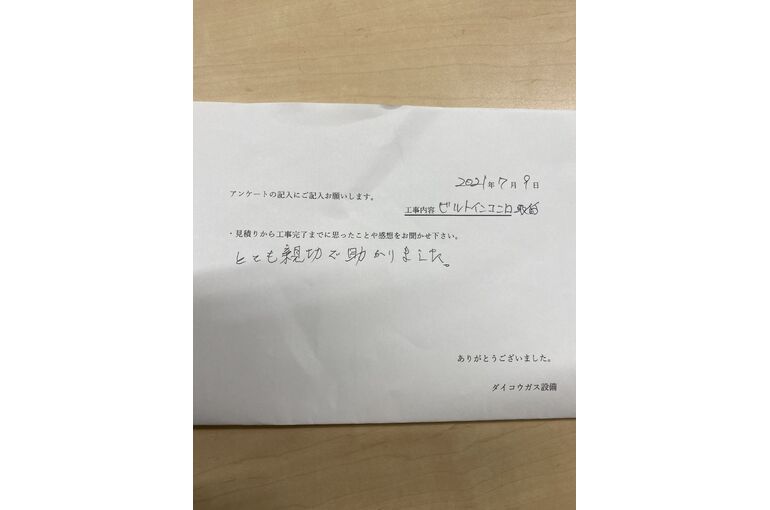 2021年7月9日
アンケートの記入にご記入お願いします。
工事内容 ビルトインコンロ取替
・見積りから工事完了までに思ったことや感想をお聞かせ下さい。
とても親切で助かりました。
ありがとうございました。
ダイコウガス設備